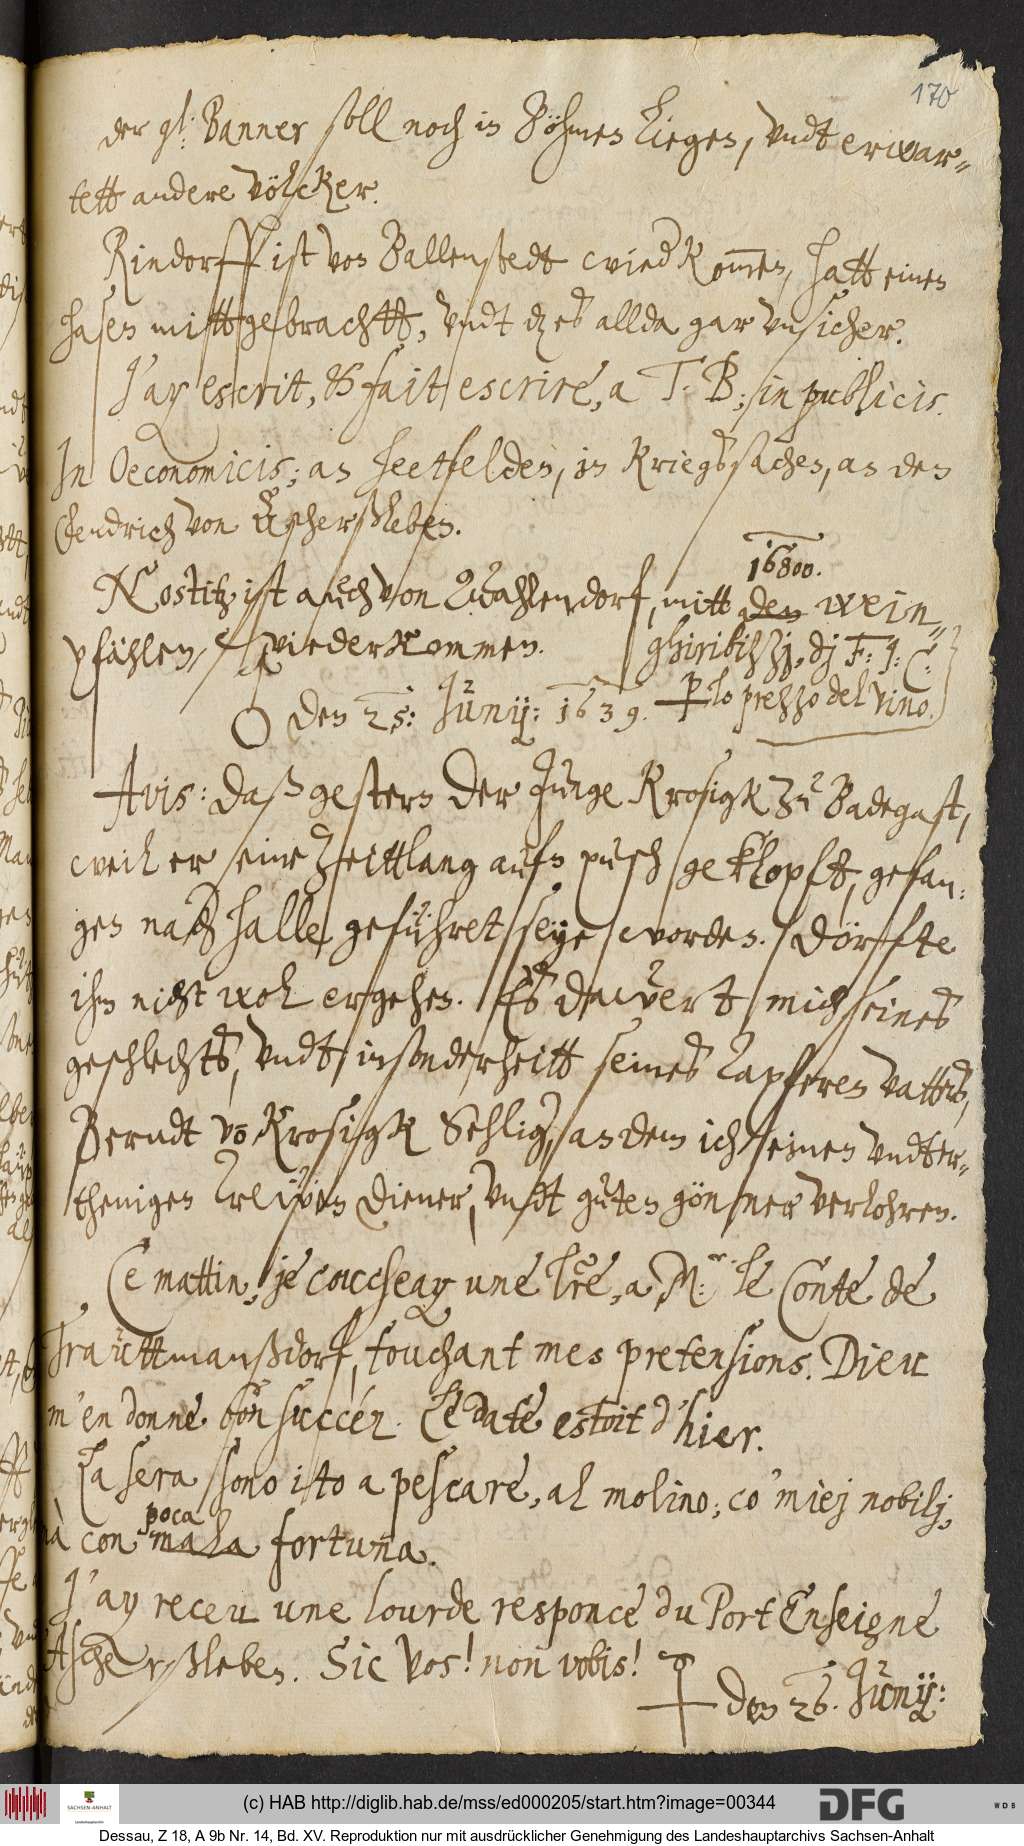 170
der gl: Banner soll noch in Böhmen liegen, vndt erwar-
tett andere völcker.
Rindorff ist von Ballenstedt wied kom̅en, hatt einen
hasen mittgebrachtt, vndt dz es allda gar vnsicher.
J'ay escrit, & fait escrire, a T: B: in publicis.
In Oeconomicis; an Heetfelden, in Kriegssachen, an den
Fendrich von Aschersleben.
16800.
Nostitz ist auch von Wahlendorf, mitt den wein-
pfählen, wiederkommen.
ghiribizzj, dj F: J: C:
☉ den 25: Juny: 1639.
lo prezzo del vino.
Avis: daß gestern der Junge Krosigk zu Badegast,
weil er eine zeittlang aufn pusch geklopft, gefan-
gen nach Halle, geführet seye worden. Dörfte
ihm nicht wol ergehen. Es dauert mich seines
geschlechts, vndt insonderheitt seines Tapferen vatters,
Berndt vo̅ Krosigk Sehlig, an dem ich einen vndter-
thenigen Treuen diener, vndt guten gönner verlohren.
Ce mattin, je couchay une lre, a Mr: le Conte de
Trauttmanßdorf, touchant mes pretensions. Dieu
m'en donne bon succéz. Le date estoit d'hier.
La sera sono ito a pescare, al molino, co' miej nobilj,
poca
mà con mala fortuna.
J'ay receu une lourde responce du Port'Enseigne
Ascherßleben. Sic vos! non vobis!
den 26. Juny:
(c) HAB http://diglib.hab.de/mss/ed000205/start.htm?image=00344
SACHSEN-ANHALT
DFG
WDB
Dessau, Z 18, A 9b Nr. 14, Bd. XV. Reproduktion nur mit ausdrücklicher Genehmigung des Landeshauptarchivs Sachsen-Anhalt